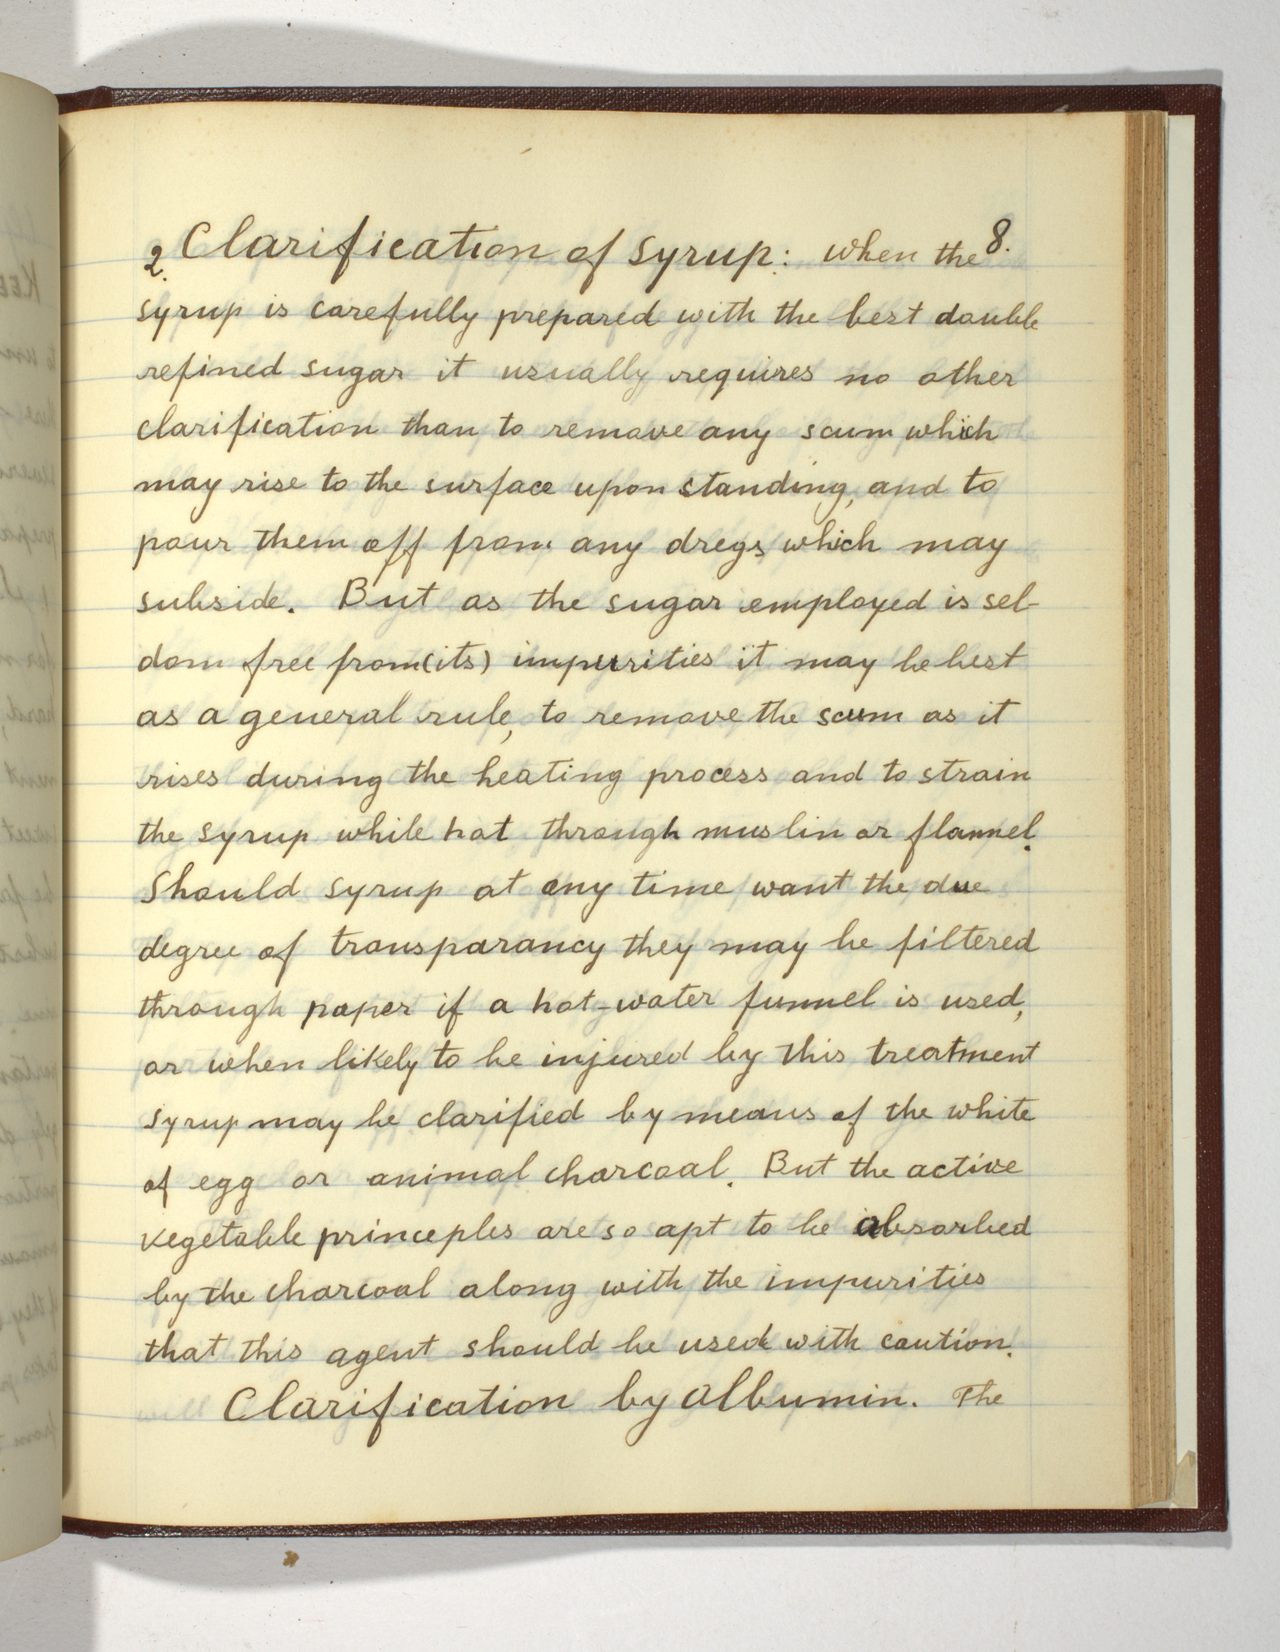 8.
2. Clarification of syrup: when the
syrup is carefully prepared with the best double
refined sugar it usually requires no other
clarification than to remove any scum which
may rise to the surface upon standing, and to
pour them off from any dregs which may
subside. But as the sugar employed is sel-
dom free from (its) impurities it may be best
as a general rule, to remove the scum as it
rises during the heating process and to strain
the syrup while hot through muslin or flannel.
Should syrup at any time want the due
degree of transparancy they may be filtered
through paper if a hot-water funnel is used,
or when likely to be injured by this treatment
syrup may be clarified by means of the white
of egg or animal charcoal. But the active
vegetable princeples are so apt to be absorbed
by the charcoal along with the impurities
that this agent should be used with caution.
Clarification by albumin. The